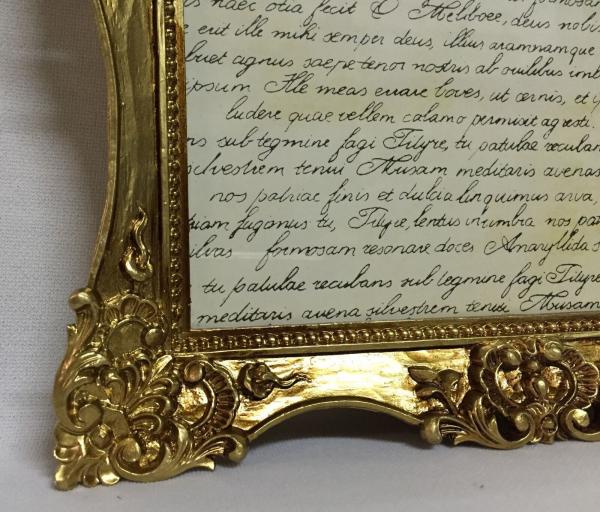 haec otia fecit O Meliboee, deus nobis
erit ille mihi semper deus, illius aramnamque
agnus saepe tenor nostris ab ovilibus imb
ipsum Ille meas errare boves, ut cernis, et
ludere quae vellem calamo permisit agresti.
sub tegmine fagi Tityre, tu patulae recuban
silvestrem tenui Musam meditaris avenas
nos patriae finis et dulcia linquimus arva,
fugamus tu, Tityre, lentus in umbra nos pat
formosam resonare doces Amaryllida s
tu patulae recubans sub tegmine fagi Tityre
meditaris avena silvestrem tenui Musam